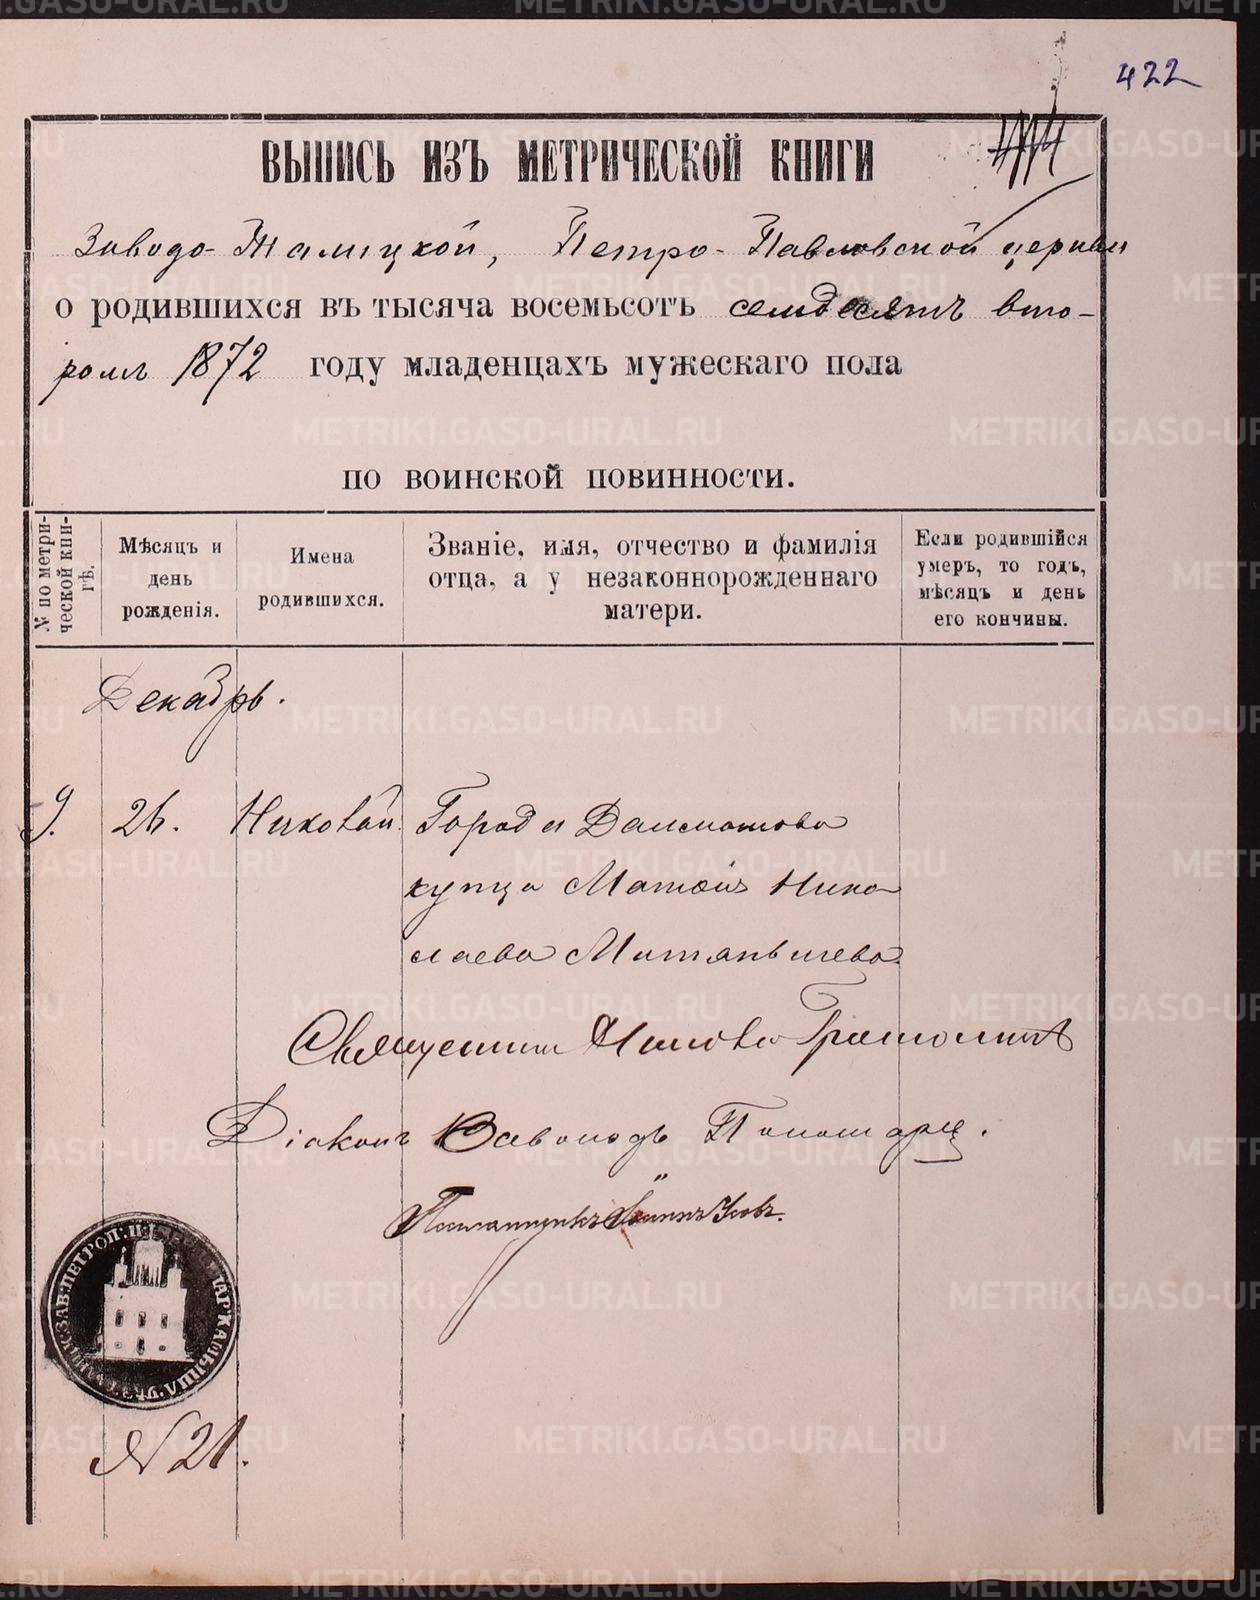 422
ВЫПИСЬ ИЗЪ МЕТРИЧЕСКОЙ КНИГИ
Заводо-Талицкой, Петро-Павловской церкви
о родившихся въ тысяча восемьсотъ семдесятъ вто-
ромъ 1872 году младенцахъ мужескаго пола
ПО ВОИНСКОЙ ПОВИННОСТИ.
№ по метри-
ческой кни-
гѣ.
Мѣсяцъ и
день
рожденія.
Имена
родившихся.
Званіе, имя, отчество и фамилія
отца, а у незаконнорожденнаго
матери.
Если родившійся
умеръ, то годъ,
мѣсяцъ и день
его кончины.
Декабрь.
9. 26. Николай. Города Далматова
купца Матѳій Нико
лаева
Священник Иаковъ
Діаконъ Всеволодъ Пономарц.
Псаломщикъ Іоаннъ
№ 21.
METRIKI.GASO-URAL.RU